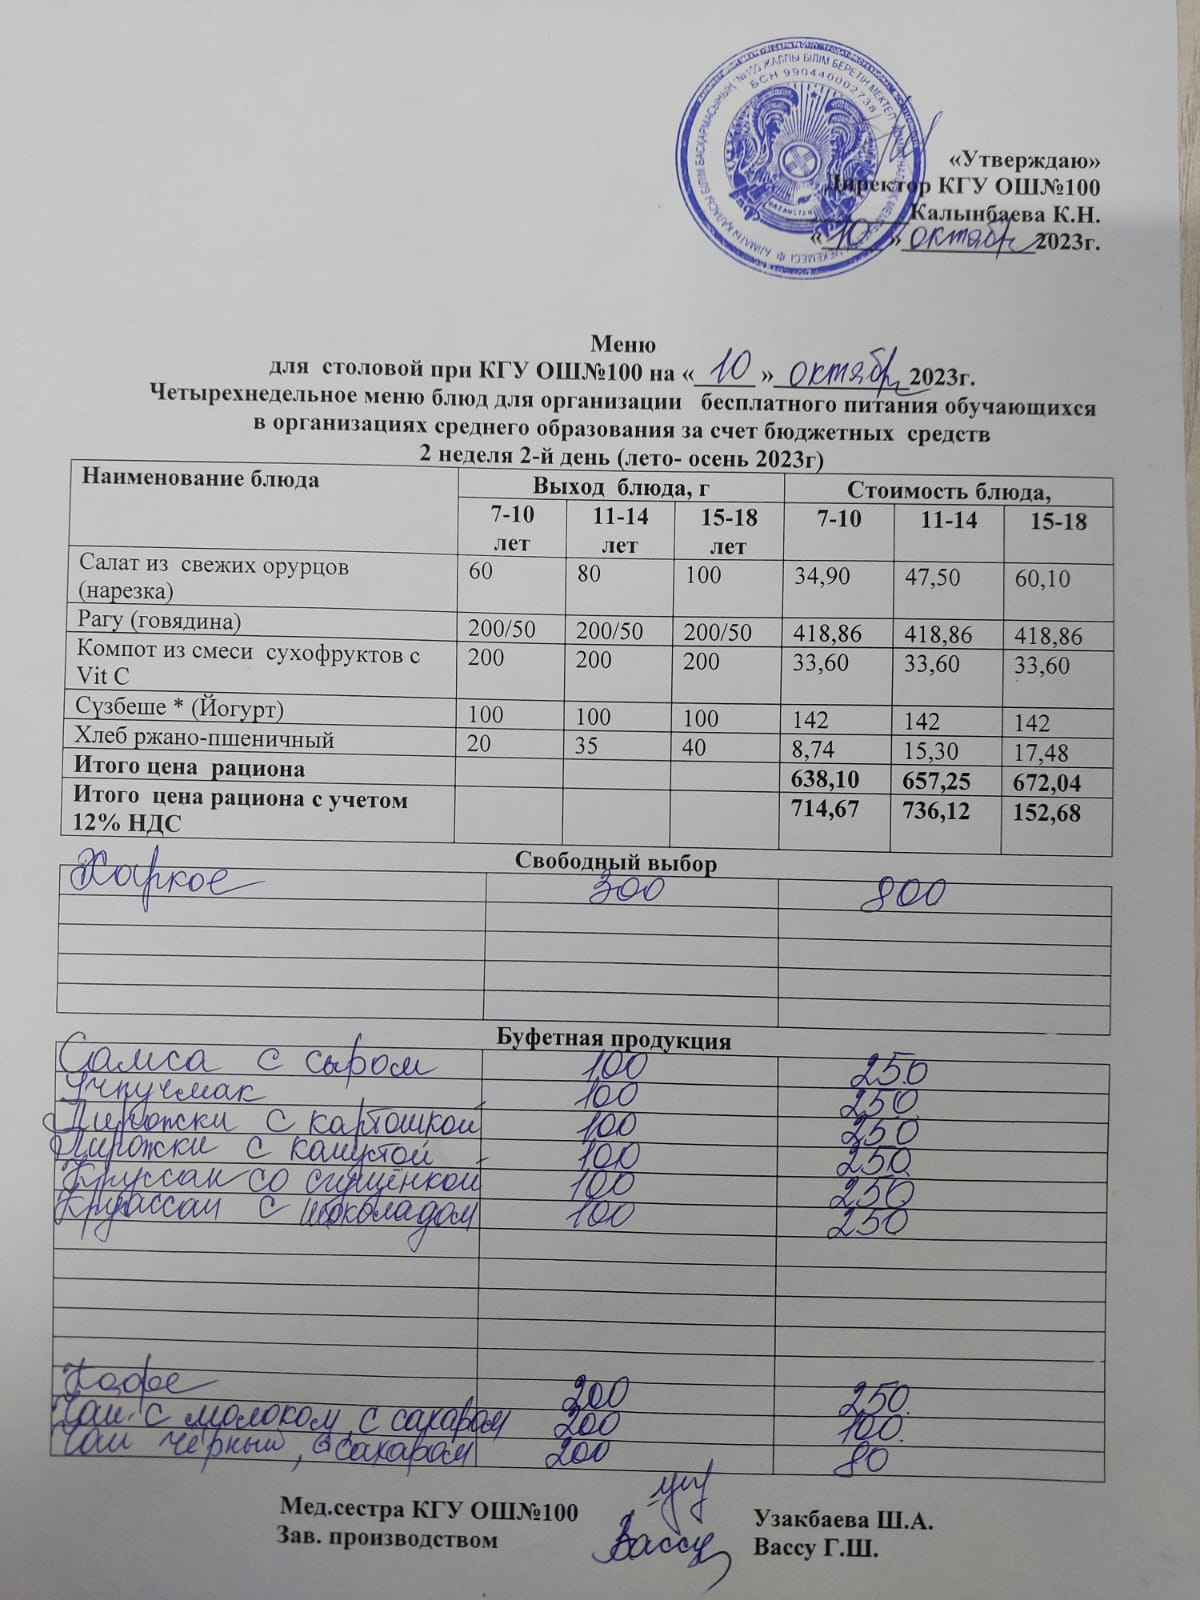 АЛМАТЫ ҚАЛАСЫ БІЛІМ БАСҚАРМАСЫНЫҢ "№100 ЖАЛПЫ БІЛІМ БЕРЕТІН МЕКТЕП"
БСН 990440002738
QAZAQSTAN
«Утверждаю»
Директор КГУ ОШ№100
Калынбаева К.Н.
« 10 » октябр 2023г.
Меню
для столовой при КГУ ОШ№100 на « 10 » октябр 2023г.
Четырехнедельное меню блюд для организации бесплатного питания обучающихся
в организациях среднего образования за счет бюджетных средств
2 неделя 2-й день (лето- осень 2023г)
Наименование блюда Выход блюда, г Стоимость блюда,
7-10 лет 11-14 лет 15-18 лет 7-10 11-14 15-18
Салат из свежих орурцов (нарезка) 60 80 100 34,90 47,50 60,10
Рагу (говядина) 200/50 200/50 200/50 418,86 418,86 418,86
Компот из смеси сухофруктов с Vit C 200 200 200 33,60 33,60 33,60
Сүзбеше * (Йогурт) 100 100 100 142 142 142
Хлеб ржано-пшеничный 20 35 40 8,74 15,30 17,48
Итого цена рациона 638,10 657,25 672,04
Итого цена рациона с учетом 12% НДС 714,67 736,12 152,68
Свободный выбор
Жаркое 300 800
Буфетная продукция
Самса с сыром 100 250
Учпучмак 100 250
Пирожки с картошкой 100 250
Пирожки с капустой 100 250
Круссан со сгущёнкой 100 250
Круассан с шоколадом 100 250
Кофе 200 250
Чай с молоком, с сахаром 200 100
Чай чёрный, с сахаром 200 80
Мед.сестра КГУ ОШ№100 Узакбаева Ш.А.
Зав. производством Вассу Вассу Г.Ш.